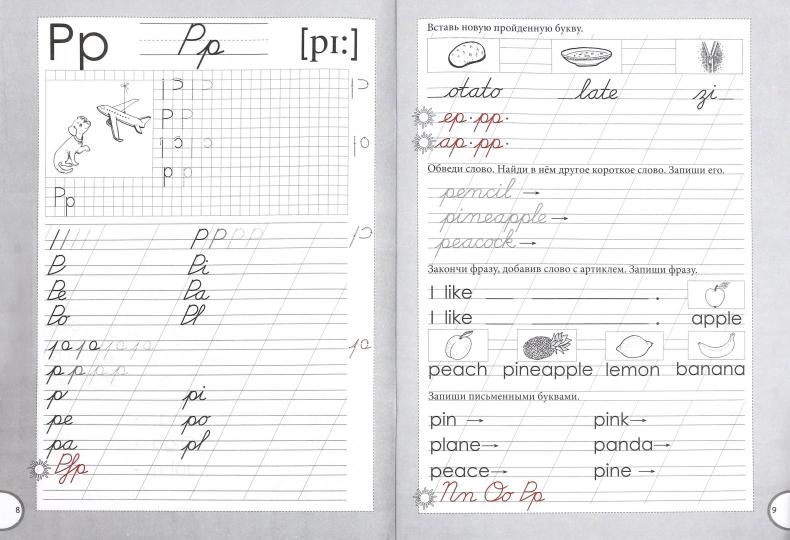 Pp Pp [pɪ:]
Pp
P Pi
Pe Pa
Po Pl
p pi
pe po
pa pl
Pp
8
Вставь новую пройденную букву.
_otato _late zi_
ep · pp ·
ap · pp ·
Обведи слово. Найди в нём другое короткое слово. Запиши его.
pencil →
pineapple →
peacock →
Закончи фразу, добавив слово с артиклем. Запиши фразу.
I like ___ ________ .
I like ___ ________ . apple
peach pineapple lemon banana
Запиши письменными буквами.
pin → pink →
plane → panda →
peace → pine →
Nn Oo Pp
9